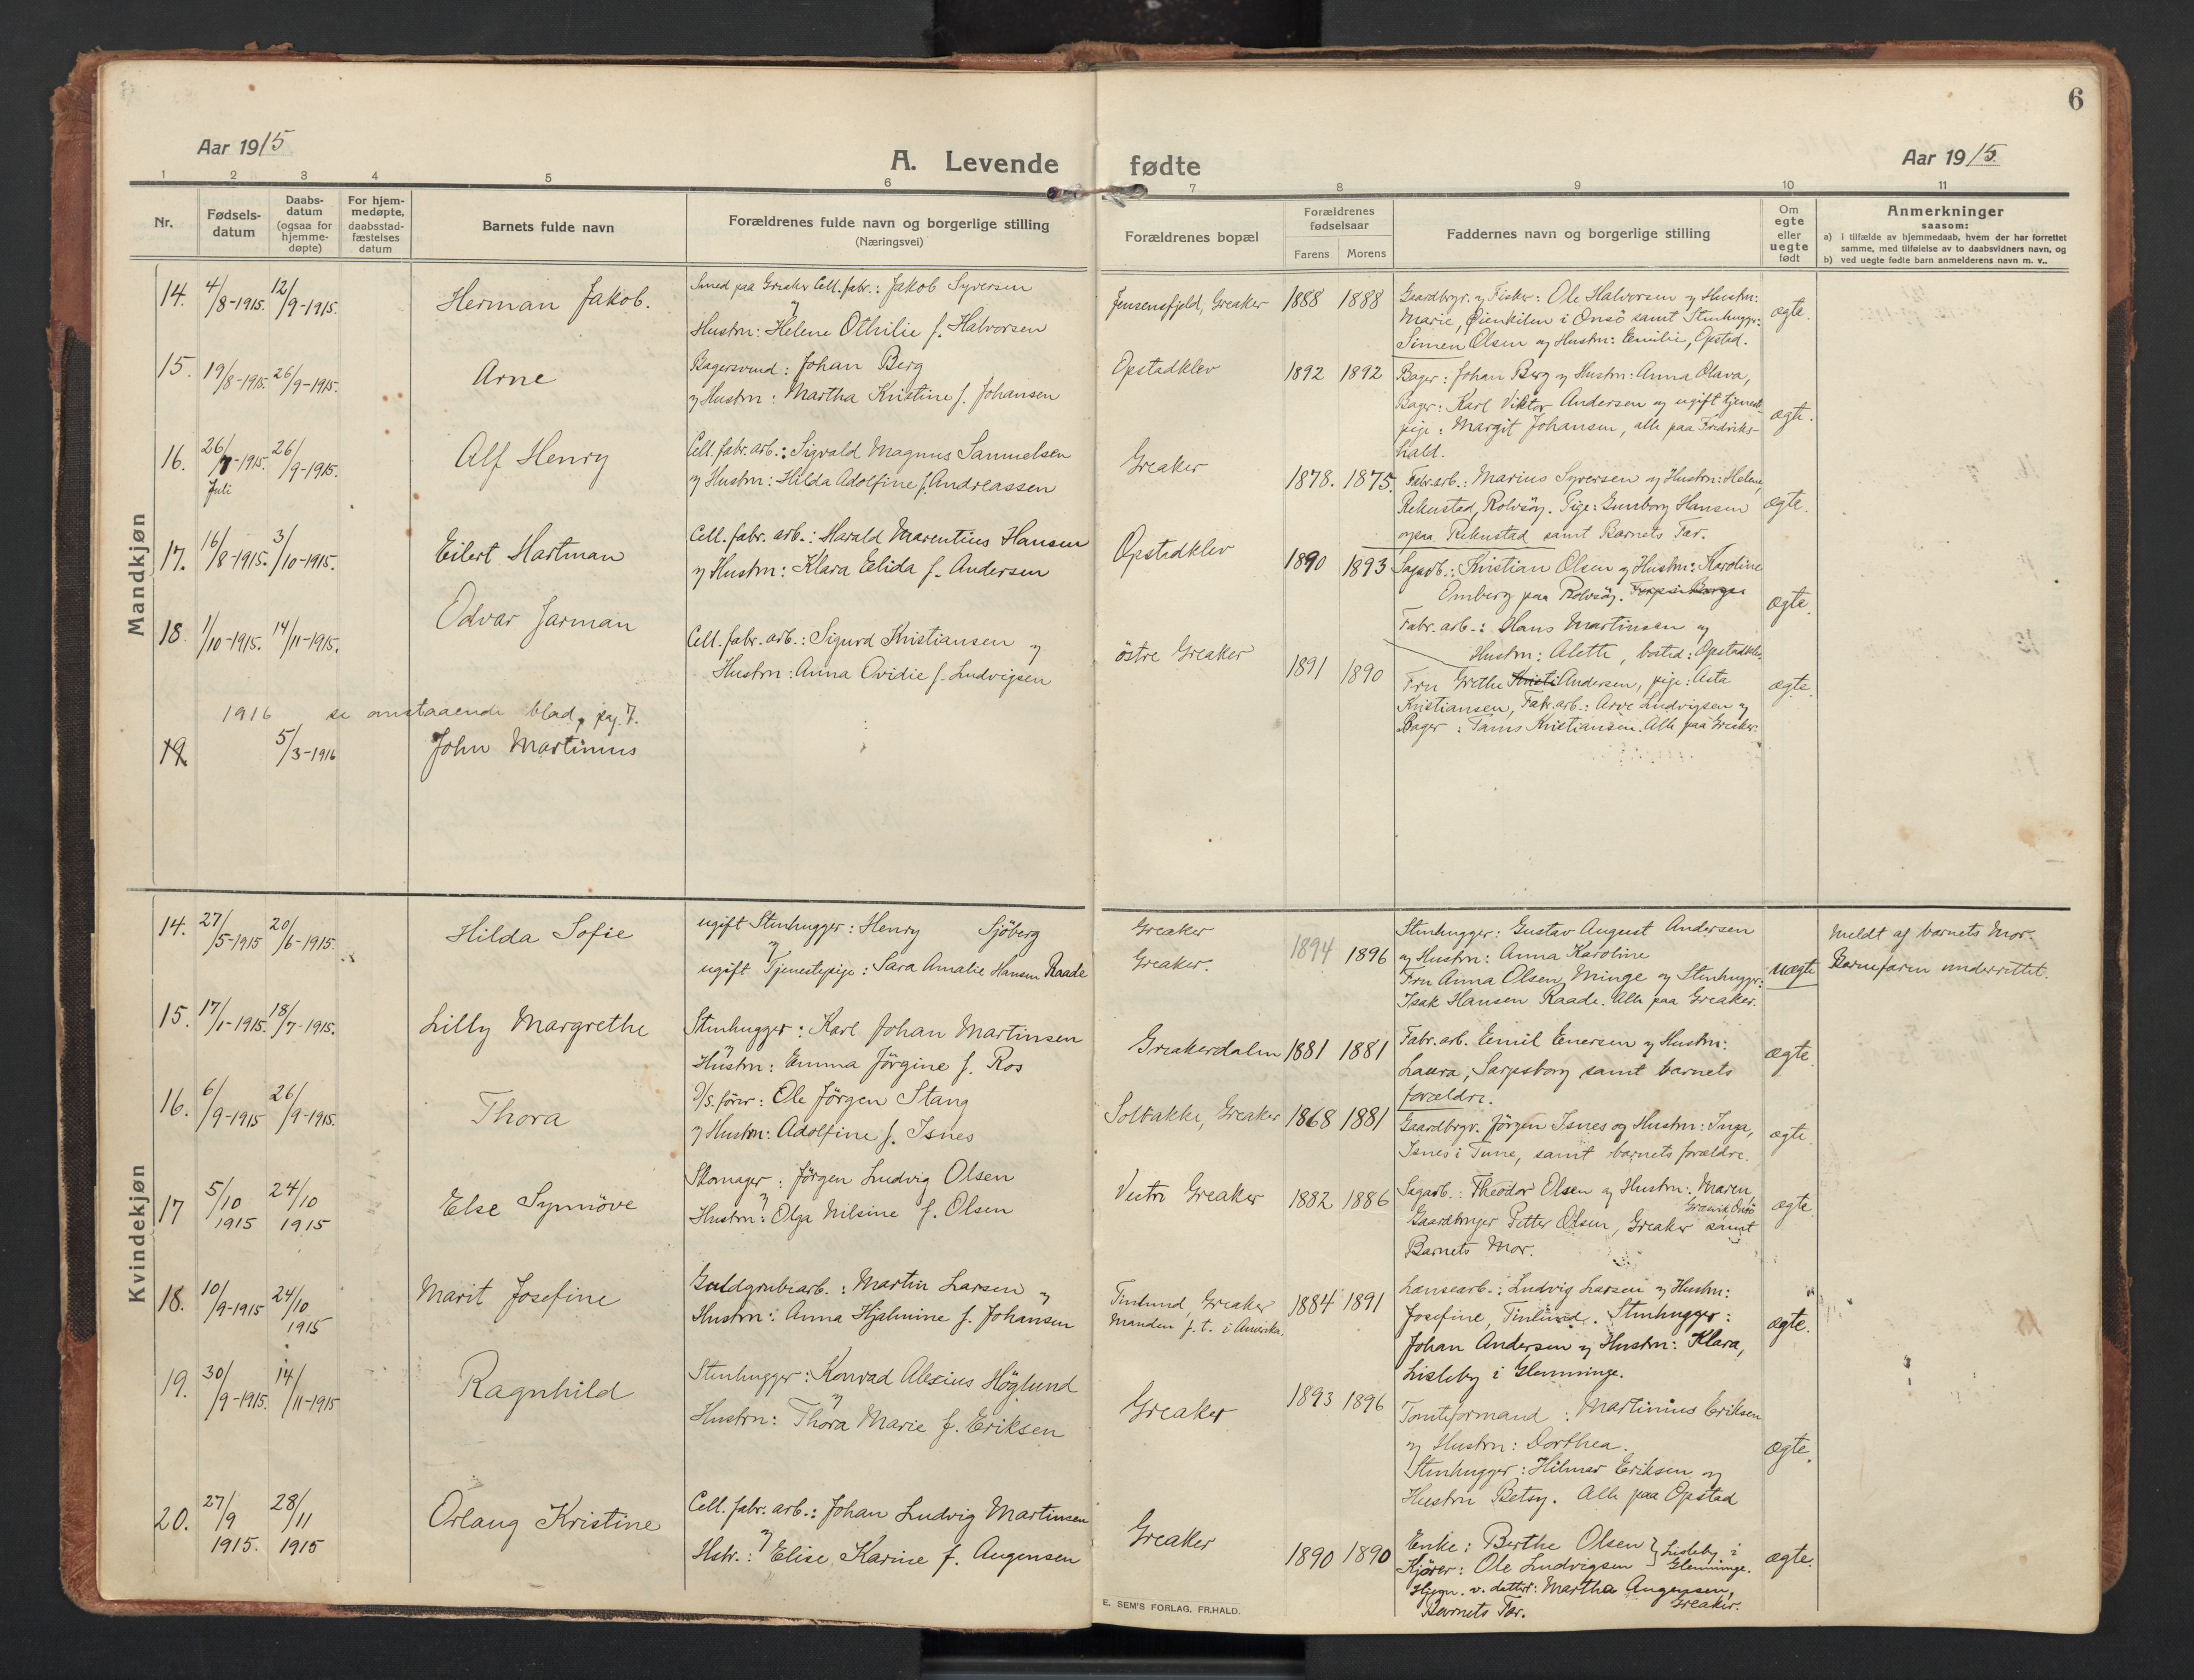 6
Aar 1915
A. Levende fødte
Aar 1915.
1 2 3 4 5 6 7 8 9 10 11
Nr.
Fødsels-
datum
Daabs-
datum
(ogsaa for
hjemme-
døpte)
For hjem-
medøpte,
daabsstad-
fæstelses
datum
Barnets fulde navn
Forældrenes fulde navn og borgerlige stilling
(Næringsvei)
Forældrenes bopæl
Forældrenes
fødselsaar
Farens Morens
Faddernes navn og borgerlige stilling
Om
egte
eller
uegte
født
Anmerkninger
saasom:
a) i tilfælde av hjemmedaab, hvem der har forrettet
samme, med tilføielse av to daabsvidners navn, og
b) ved uegte fødte barn anmelderens navn m. v..
Mandkjøn
14. 4/8-1915. 12/9-1915.
Herman Jakob.
Smed paa Greaker Cell. fabr.: Jakob Syversen
og
Hustru: Helene Othilie f. Halvorsen
Jensensfjeld, Greaker
1888 1888
Gaardbrgr. og Fisker: Ole Halvorsen og Hustru:
Marie, Øienkilen i Onsö samt Stenhuggr:
Simen Olsen og Hustru: Emilie, Opstad.
ægte.
15. 19/8-1915. 26/9-1915.
Arne
Bagersvend: Johan Berg
og Hustru: Martha Kristine f. Johansen
Opstadklev
1892 1892
Bager: Johan Berg og Hustru: Anna Olava,
Bager: Karl Viktor Andersen og ugift tjeneste-
pige: Margit Johansen, alle paa Fredriks-
hald.
ægte.
16. 26/7-1915. 26/9-1915.
Juli
Alf Henry
Cell. fabr. arb.: Sigvald Magnus Samuelsen
og Hustru: Hilda Adolfine f. Andreassen
Greaker
1878. 1875.
Fabr.arb.: Marius Syversen og Hustru: Helene,
Rekustad, Rolvsöy. Pige: Gunborg Hansen
ogsaa Rekustad samt Barnets Far.
ægte.
17. 16/8-1915. 3/10-1915.
Eilert Hartman
Cell. fabr. arb.: Harald Marentius Hansen
og Hustru: Klara Elida f. Andersen
Opstadklev
1890 1893
Sagarb.: Kristian Olsen og Hustru: Karoline
Omberg paa Rolvsöy.
Fabr. arb.: Hans Martinsen og
Hustru: Alette, bosted: Opstadklev.
ægte.
18. 1/10-1915. 14/11-1915.
Odvar Jarman
Cell. fabr. arb.: Sigurd Kristiansen og
Hustru: Anna Ovidie f. Ludvigsen
östre Greaker
1891 1890
Fru Grethe Andersen, pige: Asta
Kristiansen, Fabr.arb.: Arve Ludvigsen og
Bager: Kristiansen. Alle paa Greaker.
ægte.
1916 se omstaaende blad, pag. 7.
19. 5/3-1916
John Martinius
Kvindekjøn
14. 27/5-1915 20/6-1915.
Hilda Sofie
ugift Stenhugger: Henry Sjöberg
og
ugift Tjenestepige: Sara Amalie Hansen Raade
Greaker
Greaker.
1894 1896
Stenhugger: Gustav August Andersen
og Hustru: Anna Karoline
Fru Anna Olsen Minge og Stenhuggr:
Isak Hansen Raade. Alle paa Greaker.
uægte
Meldt af barnets Mor.
Barnefaren underrettet.
15. 17/1-1915. 18/7-1915.
Lilly Margrethe
Stenhugger: Karl Johan Martinsen
og
Hustru: Emma Jörgine f. Ros
Greakerdalen
1881 1881
Fabr. arb. Emil Enersen og Hustru:
Laura, Sarpsborg samt barnets
forældre.
ægte.
16. 6/9-1915 26/9-1915.
Thora
D/S. förer: Ole Jörgen Stang
og Hustru: Adolfine f. Isnes
Solbakke, Greaker
1868 1881
Gaardbrgr. Jörgen Isnes og Hustru: Inga,
Isnes i Tune, samt barnets forældre.
ægte.
17 5/10 1915 24/10 1915
Else Synnöve
Skomager: Jörgen Ludvig Olsen
og
Hustru: Olga Nilsine f. Olsen
Vestre Greaker
1882 1886
Sagarb.: Theodor Olsen og Hustru: Maren
Onsö
Gaardbruger Petter Olsen, Greaker samt
Barnets Mor.
ægte.
18. 10/9-1915 24/10 1915
Marit Josefine
Guldgrubearb.: Martin Larsen og
Hustru: Anna Hjalmine f. Johansen
Tinlund, Greaker
Manden f. t. i Amerika.
1884 1891
Lensearb.: Ludvig Larsen og Hustru:
Josefine, Tinlund. Stenhugger:
Johan Andersen og Hustru: Klara,
Lisleby i Glemminge.
ægte.
19. 30/9-1915. 14/11-1915
Ragnhild
Stenhugger: Konrad Alexius Höglund
og
Hustru: Thora Marie f. Eriksen
Greaker
1893 1896
Tomteformand: Martinius Eriksen
og Hustru: Dorthea.
Stenhugger: Hilmar Eriksen og
Hustru Betsy. Alle paa Opstad
ægte.
20. 27/9 1915. 28/11 1915
Orlaug Kristine
Cell. fabr. arb.: Johan Ludvig Martinsen
og
Hstr.: Elise Karine f. Augensen
Greaker
1890 1890
Enke: Berthe Olsen } Lisleby i
Kjörer: Ole Ludvigsen } Glemminge.
Hjem. v. datter: Martha Augensen,
Greaker.
Barnets Far.
ægte.
E. SEM'S FORLAG, FR.HALD.